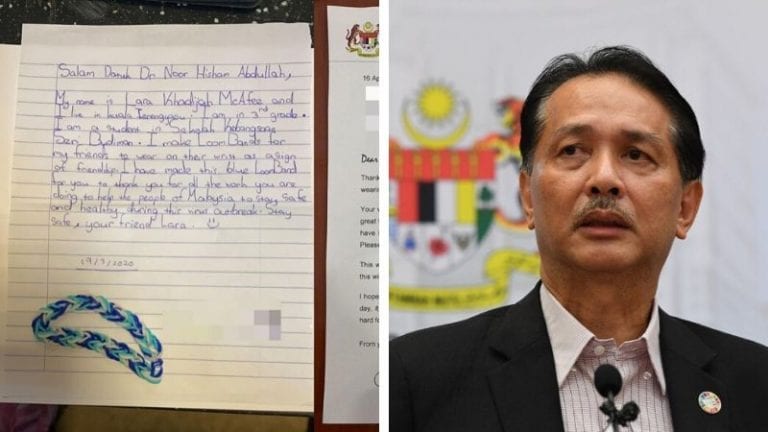 Salam Datuk Dr Noor Hisham Abdullah,
My name is Lara Khadijah McAfee and
I live in Kuala Terengganu. I am in 3rd grade.
I am a student in Sekolah Kebangsaan
Seri Budiman. I make Loom Bands for
my friends to wear on their wrist as a sign
of friendship. I have made this blue Loom Band
for you to thank you for all the work you are
doing to help the people of Malaysia to stay safe
and healthy during this virus outbreak. Stay
safe, your friend Lara.
19/3/2020
16 Ap
Dear
Thank
wearin
Your v
great
have i
Please
This w
this wi
I hope
day, it
hard fo
From y